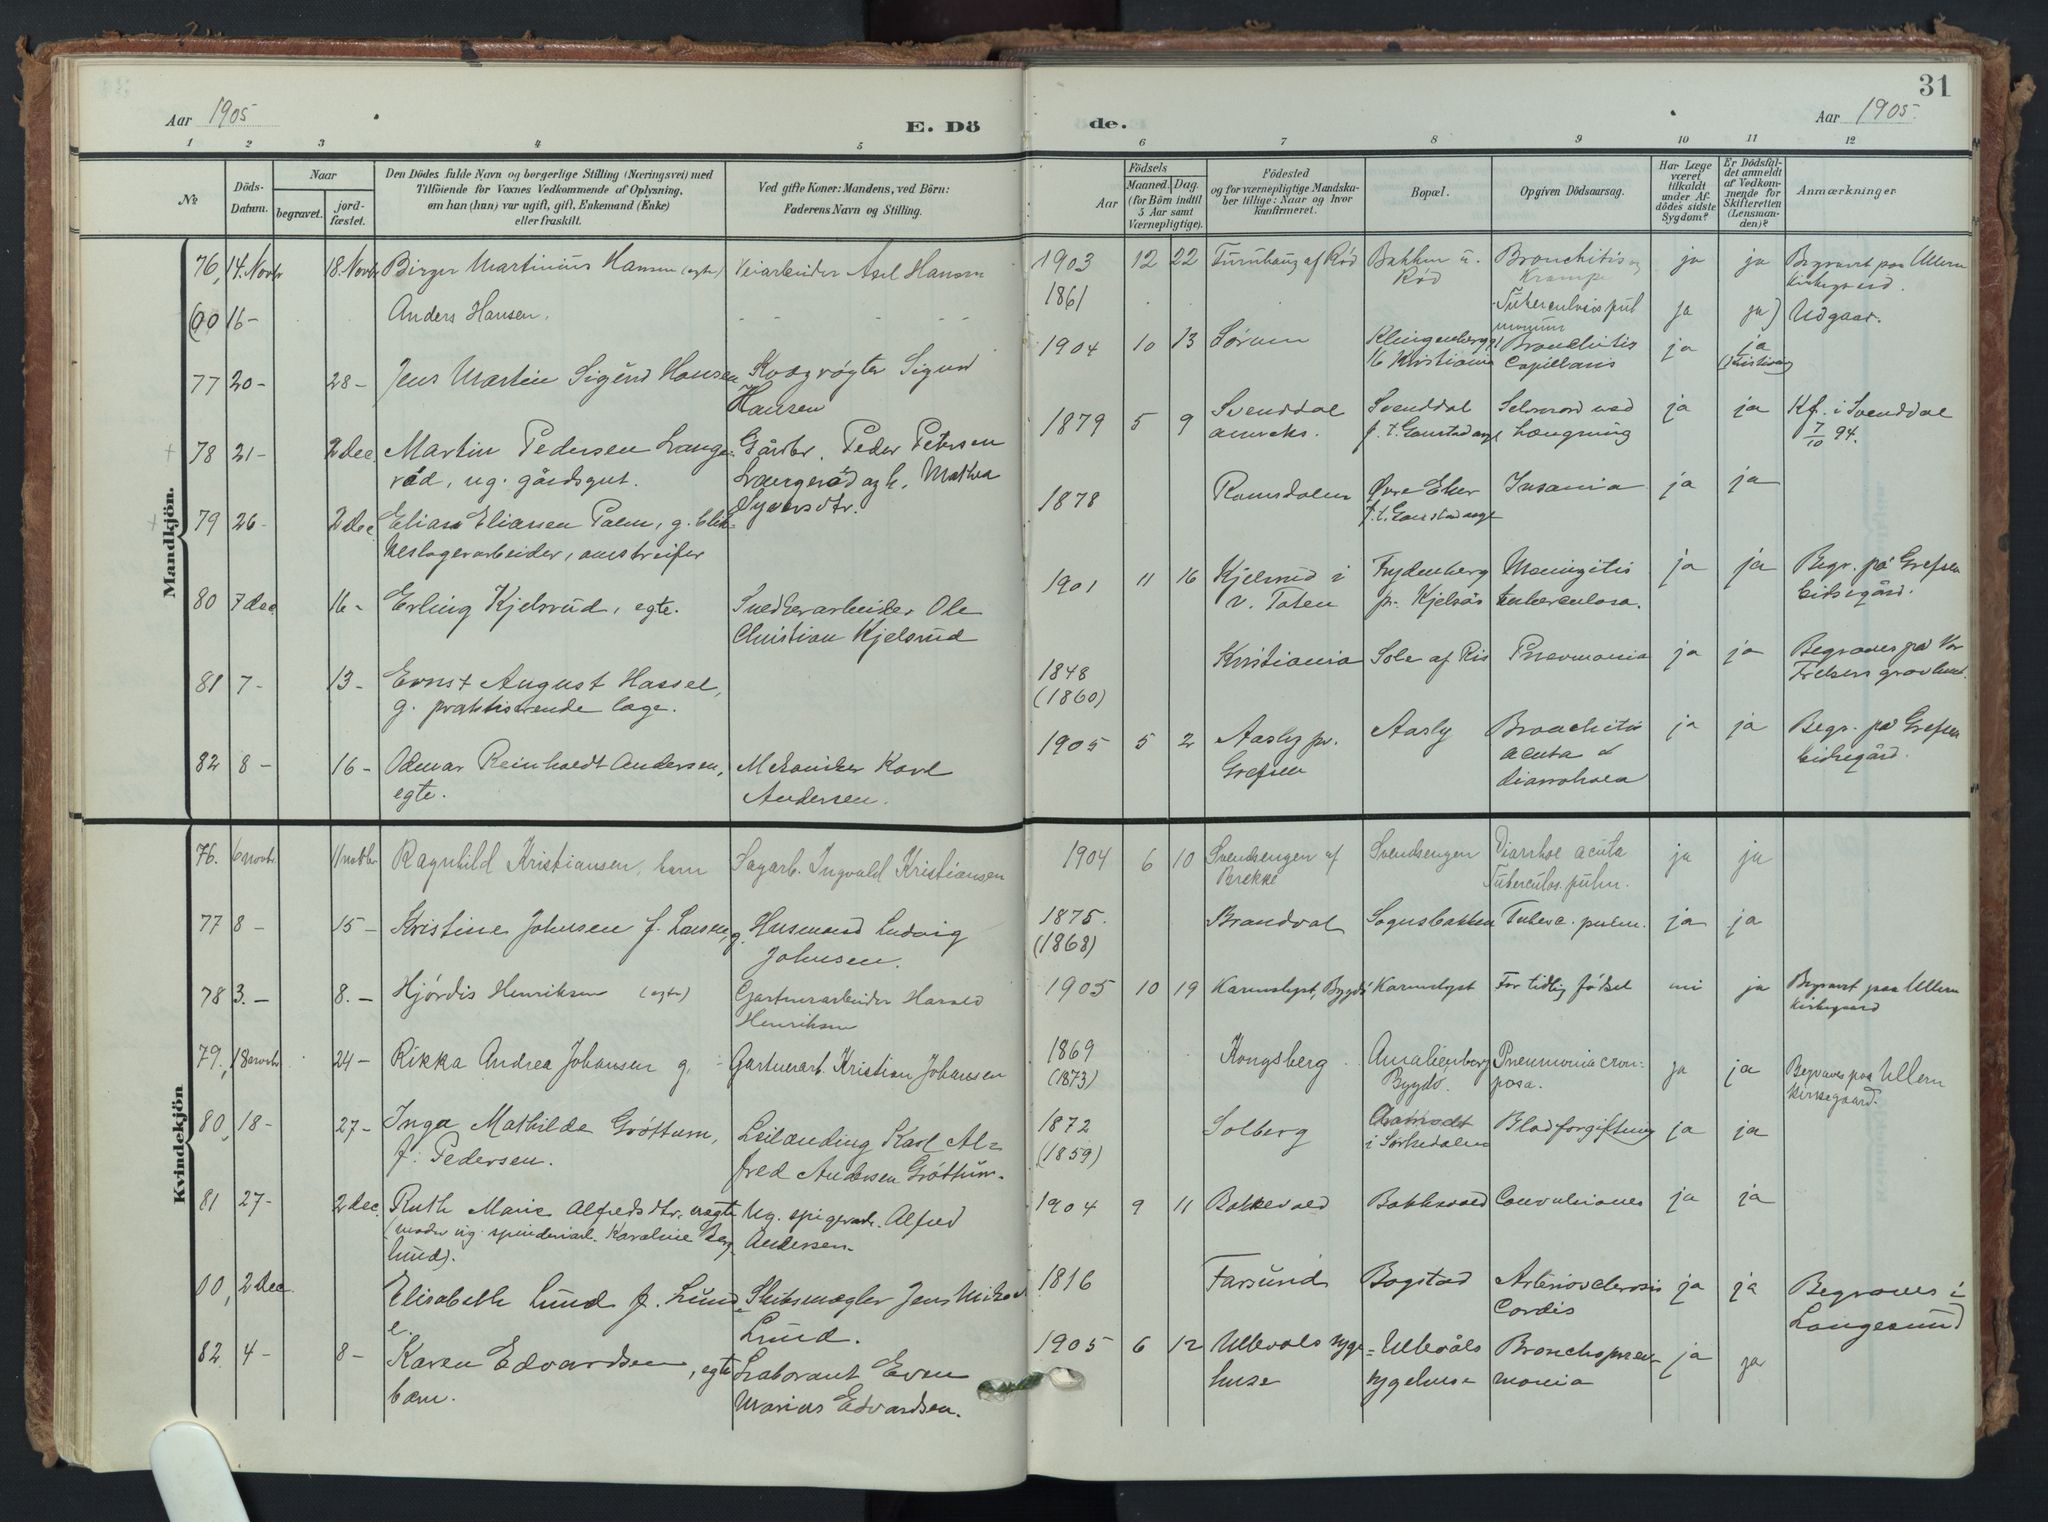 31
Aar 1905
E. Dö
de.
Aar 1905.
1 2 3 4 5 6 7 8 9 10 11 12
№
Döds-Datum.
Naar
begravet.
jordfæstet.
Den Dödes fulde Navn og borgerlige Stilling (Næringsvei) med
Tilföiende for Voxnes Vedkommende af Oplysning,
om han (hun) var ugift, gift, Enkemand (Enke)
eller fraskilt.
Ved gifte Koner: Mandens, ved Börn:
Faderens Navn og Stilling.
Födsels
Aar
Maaned. Dag.
(for Börn indtil
5 Aar samt
Værnepligtige).
Födested
og for værnepligtige Mandskaber tillige: Naar og hvor
konfirmeret.
Bopæl.
Opgiven Dödsaarsag.
Har Læge
været
tilkaldt
under Afdödes sidste
Sygdom?
Er Dödsfaldet anmeldt
af Vedkommende for
Skifteretten
(Lensmanden)?
Anmærkninger
Mandkjön.
76, 14. Novbr 18. Novbr Birger Martinius Hansen (egte) Veiarbeider Axel Hansen 1903 12 22 af Rød Bakken u. Rød Bronchitis og Krampe ja ja Begravet paa Ullern Kirkegaard.
(00 16- Anders Hansen. 1861 Tuberculosis pulmonum ja ja) Udgaar.
77 20- 28- Jens Martin Sigurd Hansen Kvægrøgter Sigurd Hansen 1904 10 13 Sørum Klingenberggt 16 Kristiania Bronchitis Capillaris ja ja (Kristiania)
78 21- 2 dec. Martin Pedersen Langerød, ug. gårdsgut. Gårdbr. Peder Petersen Langerød og h. Mathea Syversdtr. 1879 5 9 Svenddal anneks. Svenddal f. t. Gaustad asyl Selvmord ved hængning ja ja Kf. i Svenddal 7/10 94.
79 26- 2 dec Elias Eliassen Palm, g. blikkenslagerarbeider, omstreifer 1878 Romsdalen Øvre Eker f. t. Gaustad asyl Insania ja ja
80 7 dec. 16- Erling Kjelsrud, egte. Snedkerarbeider Ole Christian Kjelsrud 1901 11 16 Kjelsrud i V. Toten Frydenberg pr. Kjelsås Meningitis tuberculosa. ja ja Begr. på Grefsen kirkegård.
81 7- 13- Ernst August Hassel, g. praktiserende læge. 1848 (1860) Kristiania Sole af Ris Pneumonia ja ja Begraves på Vor Frelsers gravlund.
82 8- 16- Odmar Reinholdt Andersen, egte. Mekaniker Karl Andersen. 1905 5 2 Aasly pr. Grefsen Aasly Bronchitis acuta & diarrohoea ja ja Begr. på Grefsen kirkegård.
Kvindekjön
76. 6 novbr. 11 novbr Ragnhild Kristiansen, barn Sagarb. Ingvald Kristiansen 1904 6 10 Svendsengen af Brekke Svendsengen Diarrhoe acuta Tuberculos. pulm. ja ja
77 8- 15- Kristine Johnsen f. Larsen, g. Husmand Ludvig Johnsen. 1875. (1868) Brandval Sognsbakken Tuberc. pulm. ja ja
78 3.- 8.- Hjørdis Henriksen (egte) Gartnerarbeider Harald Henriksen 1905 10 19 Karenslyst, Bygdø Karenslyst For tidlig fødsel nei ja Begravet paa Ullern Kirkegaard
79., 18 novbr 24- Rikka Andrea Johansen g. Gartnerarb. Kristian Johansen 1869 (1873) Kongsberg Amalienberg Bygdø Pneumonia crouposa. ja ja Begraves paa Ullern Kirkegaard.
80, 18- 27- Inga Mathilde Grøttum, f. Pedersen. Leilænding Karl Alfred Andersen Grøttum. 1872 (1859) Solberg i Sørkedalen Blodforgiftning ja ja
81 27- 2 dec. Ruth Marie Alfredsdtr. uegte (moder ug. spinderiarb. Karoline Berglund). Ug. spigerarb. Alfred Andersen. 1904 9 11 Bakkevold Bakkevold Convulsiones ja ja
00, 2 dec. Elisabeth Lund f. Lund e. Skibsmægler Jens Lund. 1816 Farsund Bogstad Arteriosclerosis Cordis ja ja Begraves i Langesund)
82. 4- 8- Karen Edvardsen, egte barn. Laborant Even Marius Edvardsen. 1905 6 12 Ullevåls sygehuse Ullevåls sygehuse Bronchopneumonia ja ja